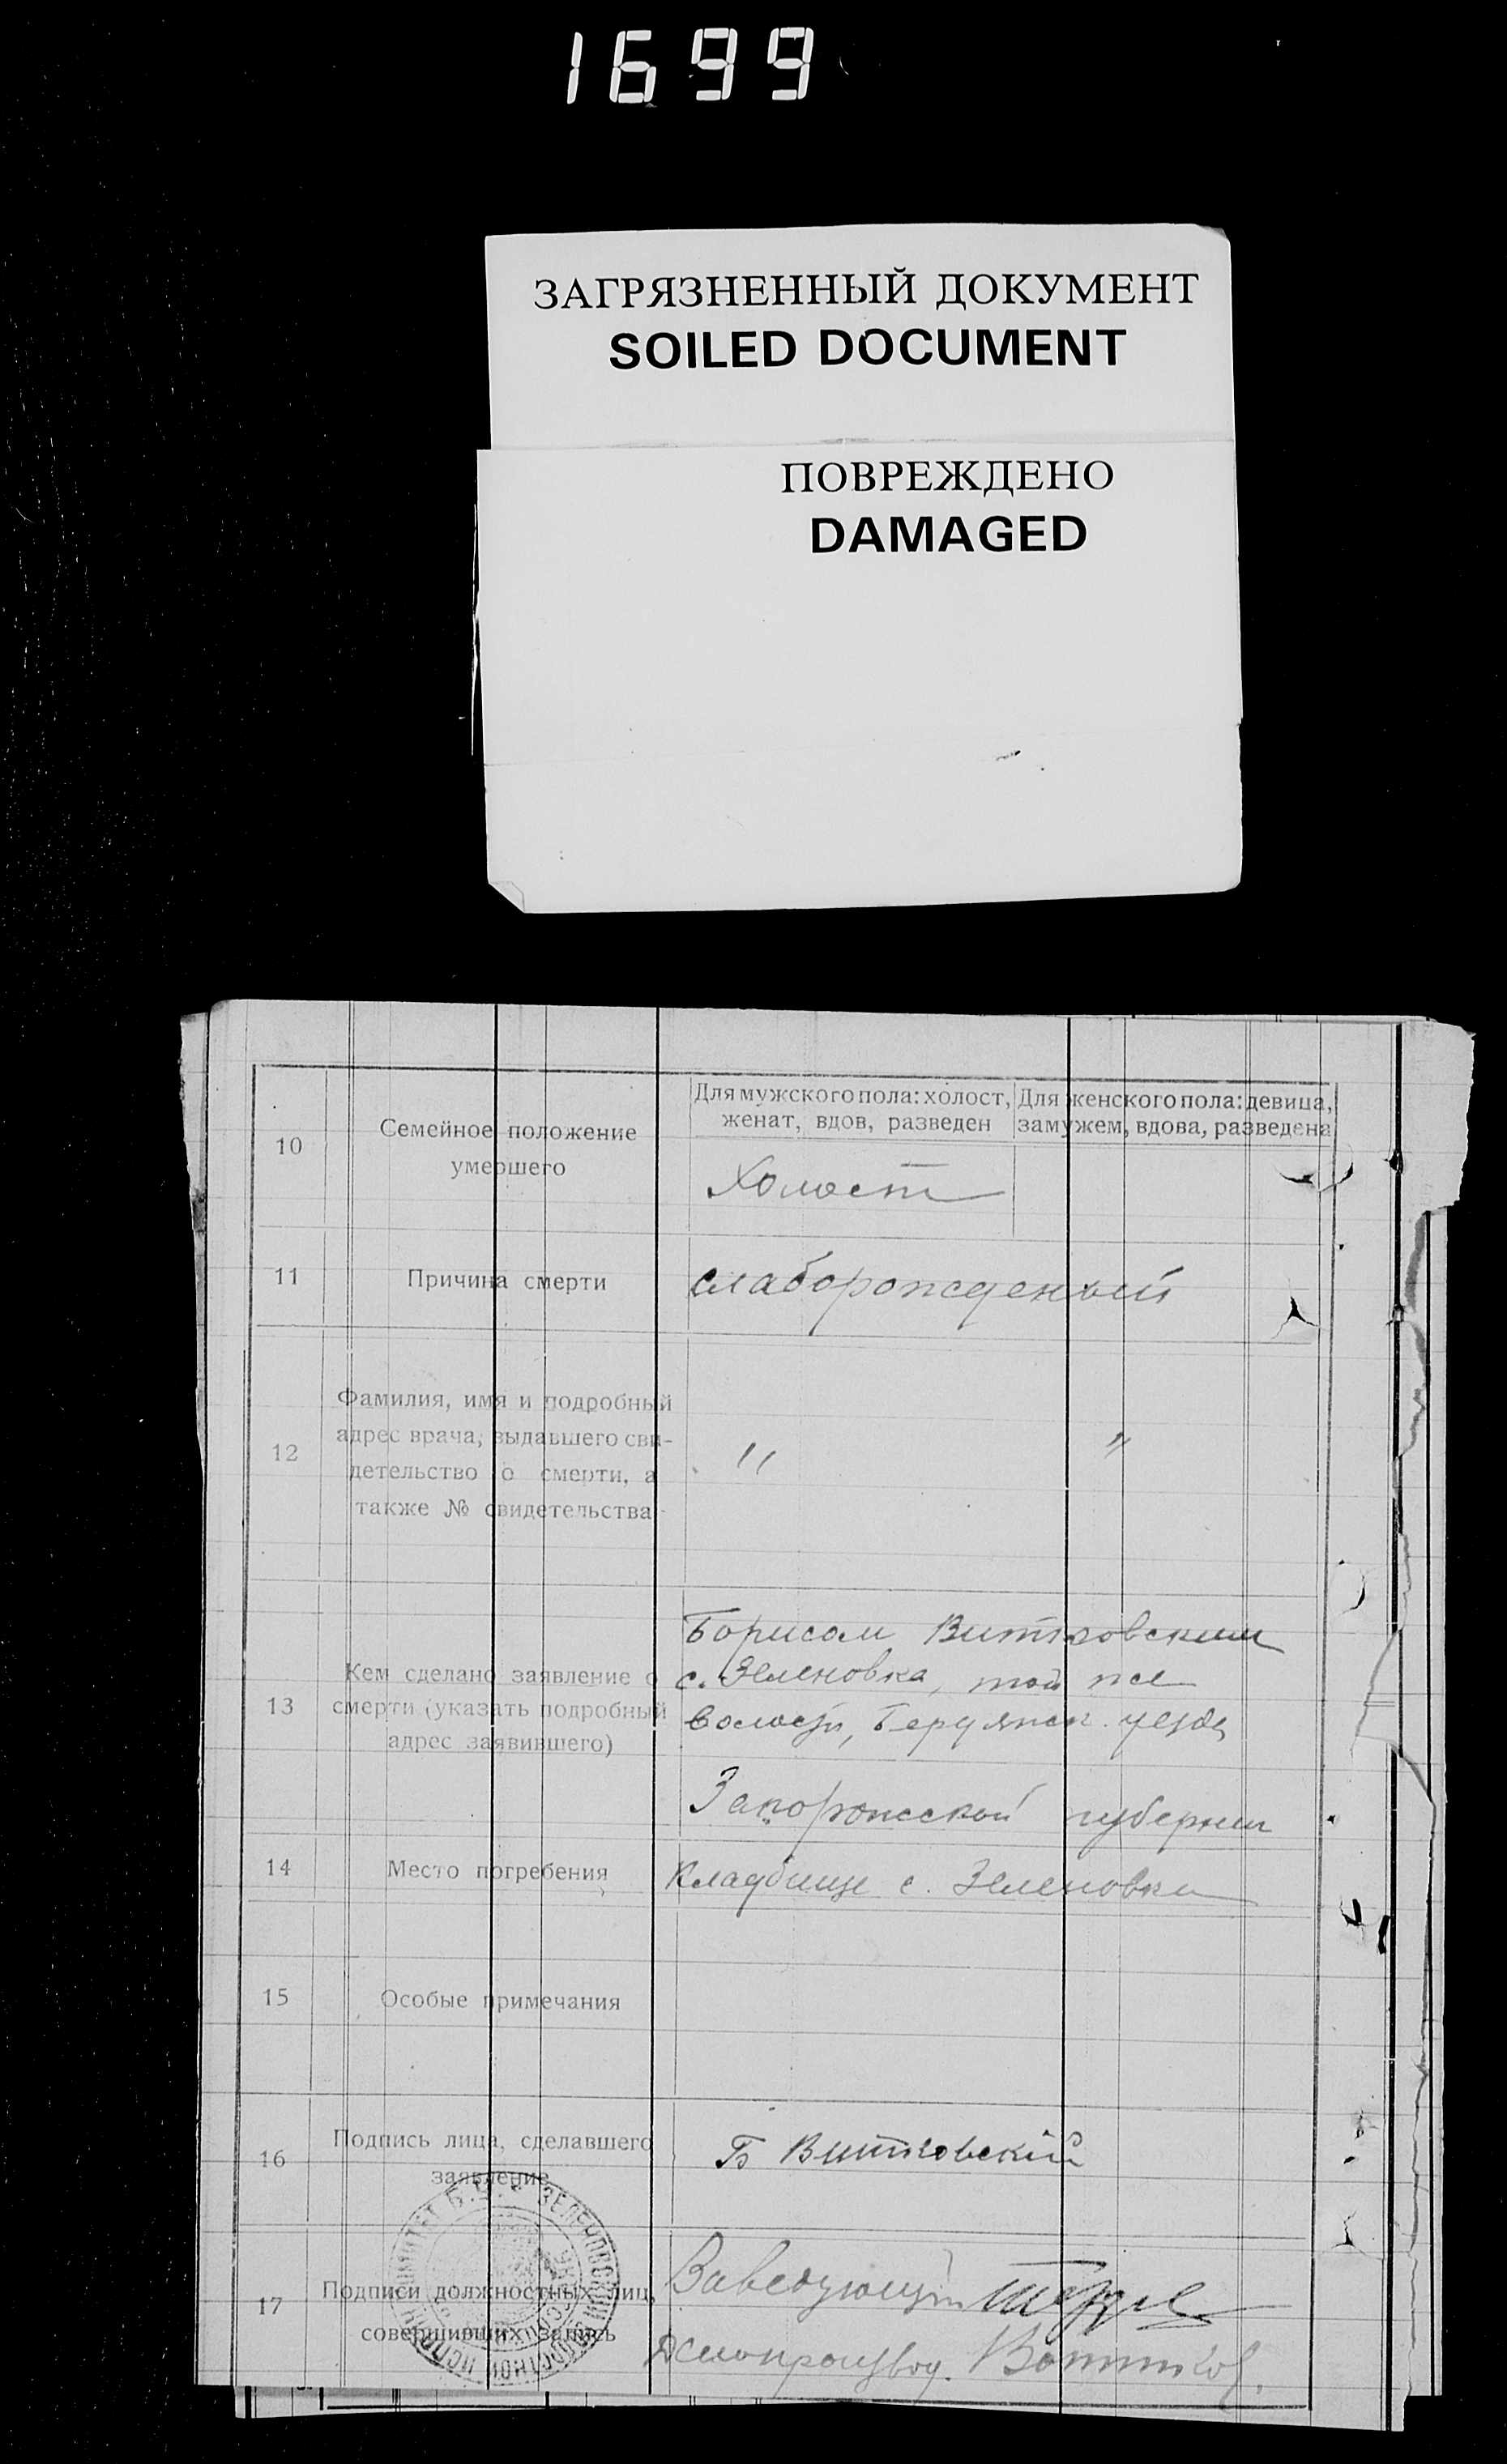 1699
ЗАГРЯЗНЕННЫЙ ДОКУМЕНТ
SOILED DOCUMENT
ПОВРЕЖДЕНО
DAMAGED
10
Семейное положение
умершего
Для мужского пола: холост,
женат, вдов, разведен
Для женского пола: девица,
замужем, вдова, разведена
Холост
11
Причина смерти
слаборожденый
12
Фамилия, имя и подробный
адрес врача, выдавшего сви-
детельство о смерти, а
также № свидетельства
" "
13
Кем сделано заявление о
смерти (указать подробный
адрес заявившего)
Борисом Витковским
с. Зеленовка, той же
волости, Бердянск. уезда
Запорожской губернии
14
Место погребения
Кладбище с. Зеленовки
15
Особые примечания
16
Подпись лица, сделавшего
заявление
Б Витковскій
17
Подписи должностных лиц,
совершивших запись
Заведующий
Делопроизвод.